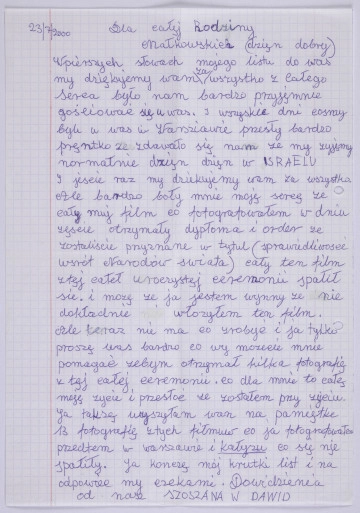 23/7/2000 Dla całej Rodziny
Małkowskich (dzień dobry)
W pierszych słowach mojego listu do was
my dziękujemy wam za wszystko z całego
serca było nam bardzo przyjemnie
gościować się u was. I wszyskie dni cosmy
byli u was i Warszawie przeszły bardzo
prętko ze zdawało się nam ze my żyjemy
normalnie dzien dzien w ISRAELU
I jescie raz my dziękujemy wam za wszystko
Ale bardzo boły mnie moją sercę ze
cały mój film co fotografowałem w dniu
zescie otrzymały dyploma i order ze
zostaliscie pryznane w tytuł (sprawiedliwosce
wsrót Narodów swiata) cały ten film
z tej całej uroczystej ceremonii spalił
się. i mozę ze ja jestem wynny ze nie
dokładnie włozyłem ten film.
Ale teraz nie ma co zrobyc i ja tylko
proszę was bardzo co wy mozecie mnie
pomagac zebym otrzymał kilka fotografię
z tej całej ceremonii. co dla mnie to całe
moję zycie i prestoe ze zostałem pry zyciu.
Ja takszę wysyłam wan na pamiętke
13 fotografię z tych filmuw co ja fotografowałem
przedtem w warszawie i Kałyszu co się nie
spality. Ja konczę mój krutki list i na
odpowze my czekami. Dowidzienia
od nas SZOSZANA W DAWID